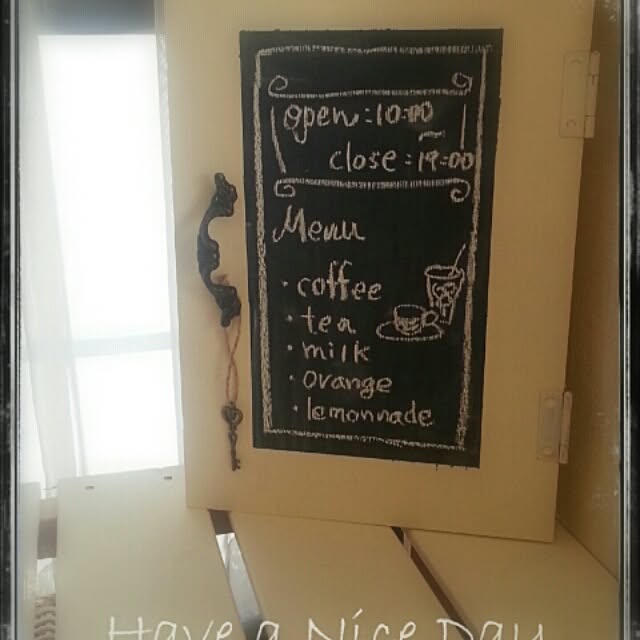 open:10:00
close:19:00
Menu
・coffee
・tea
・milk
・orange
・lemonnade
Have a Nice Day